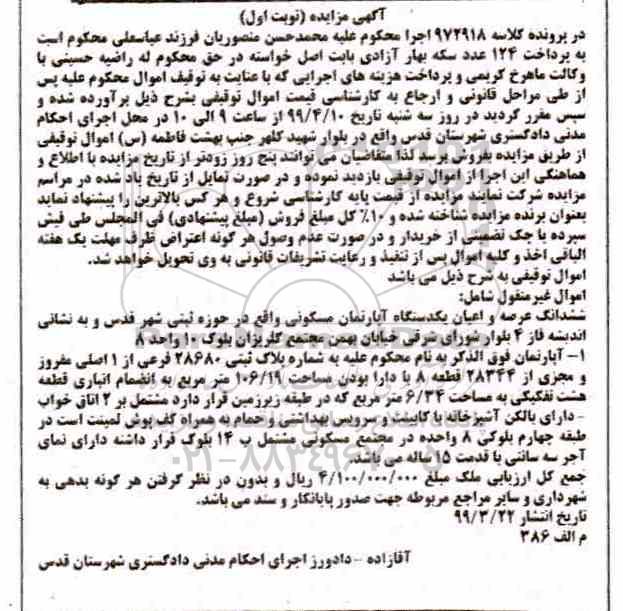 آگهی مزایده (نوبت اول)
در پرونده کلاسه ۹۷۲۹۱۸ اجرا محکوم علیه محمدحسن منصوریان فرزند عباسعلی محکوم است
به پرداخت ۱۲۴ عدد سکه بهار آزادی بابت اصل خواسته در حق محکوم له راضیه حسینی با
وکالت ماهرخ کریمی و پرداخت هزینه های اجرایی که با عنایت به توقیف اموال محکوم علیه پس
از طی مراحل قانونی و ارجاع به کارشناسی قیمت اموال توقیفی بشرح ذیل برآورده شده و
سپس مقرر گردید در روز سه شنبه تاریخ ۹۹/۴/۱۰ از ساعت ۹ الی ۱۰ در محل اجرای احکام
مدنی دادگستری شهرستان قدس واقع در بلوار شهید کلهر جنب بهشت فاطمه (س) اموال توقیفی
از طریق مزایده بفروش برسد لذا متقاضیان می توانند پنج روز زودتر از تاریخ مزایده با اطلاع و
هماهنگی این اجرا از اموال توقیفی بازدید نموده و در صورت تمایل از تاریخ یاد شده در مراسم
مزایده شرکت نمایند مزایده از قیمت پایه کارشناسی شروع و هر کس بالاترین را پیشنهاد نماید
بعنوان برنده مزایده شناخته شده و ۱۰٪ کل مبلغ فروش (مبلغ پیشنهادی) فی المجلس طی فیش
سپرده یا چک تضمینی از خریدار و در صورت عدم وصول هر گونه اعتراض ظرف مهلت یک هفته
الباقی اخذ و کلیه اموال پس از تنفیذ و رعایت تشریفات قانونی به وی تحویل خواهد شد.
اموال توقیفی به شرح ذیل می باشد
اموال غیرمنقول شامل:
ششدانگ عرصه و اعیان یکدستگاه آپارتمان مسکونی واقع در حوزه ثبتی شهر قدس و به نشانی
اندیشه فاز ۴ بلوار شورای شرقی خیابان بهمن مجتمع گلریزان بلوک ۱۰ واحد ۸
۱- آپارتمان فوق الذکر به نام محکوم علیه به شماره پلاک ثبتی ۲۸۶۸۰ فرعی از ۱ اصلی مفروز
و مجزی از ۲۸۳۴۴ قطعه ۸ با دارا بودن مساحت ۱۰۶/۱۹ متر مربع به انضمام انباری قطعه
هشت تفکیکی به مساحت ۶/۳۴ متر مربع که در طبقه زیرزمین قرار دارد مشتمل بر ۲ اتاق خواب
- دارای بالکن آشپزخانه با کابینت و سرویس بهداشتی و حمام به همراه کف پوش لمینت است در
طبقه چهارم بلوکی ۸ واحده در مجتمع مسکونی مشتمل ب ۱۴ بلوک قرار داشته دارای نمای
آجر سه سانتی با قدمت ۱۵ ساله می باشد.
جمع کل ارزیابی ملک مبلغ ۴/۱۰۰/۰۰۰/۰۰۰ ریال و بدون در نظر گرفتن هر گونه بدهی به
شهرداری و سایر مراجع مربوطه جهت صدور پایانکار و سند می باشد.
تاریخ انتشار ۹۹/۳/۲۲
م الف ۳۸۶
آقازاده - دادورز اجرای احکام مدنی دادگستری شهرستان قدس
۰۲۱-۸۸۳۴۹۶۷۰